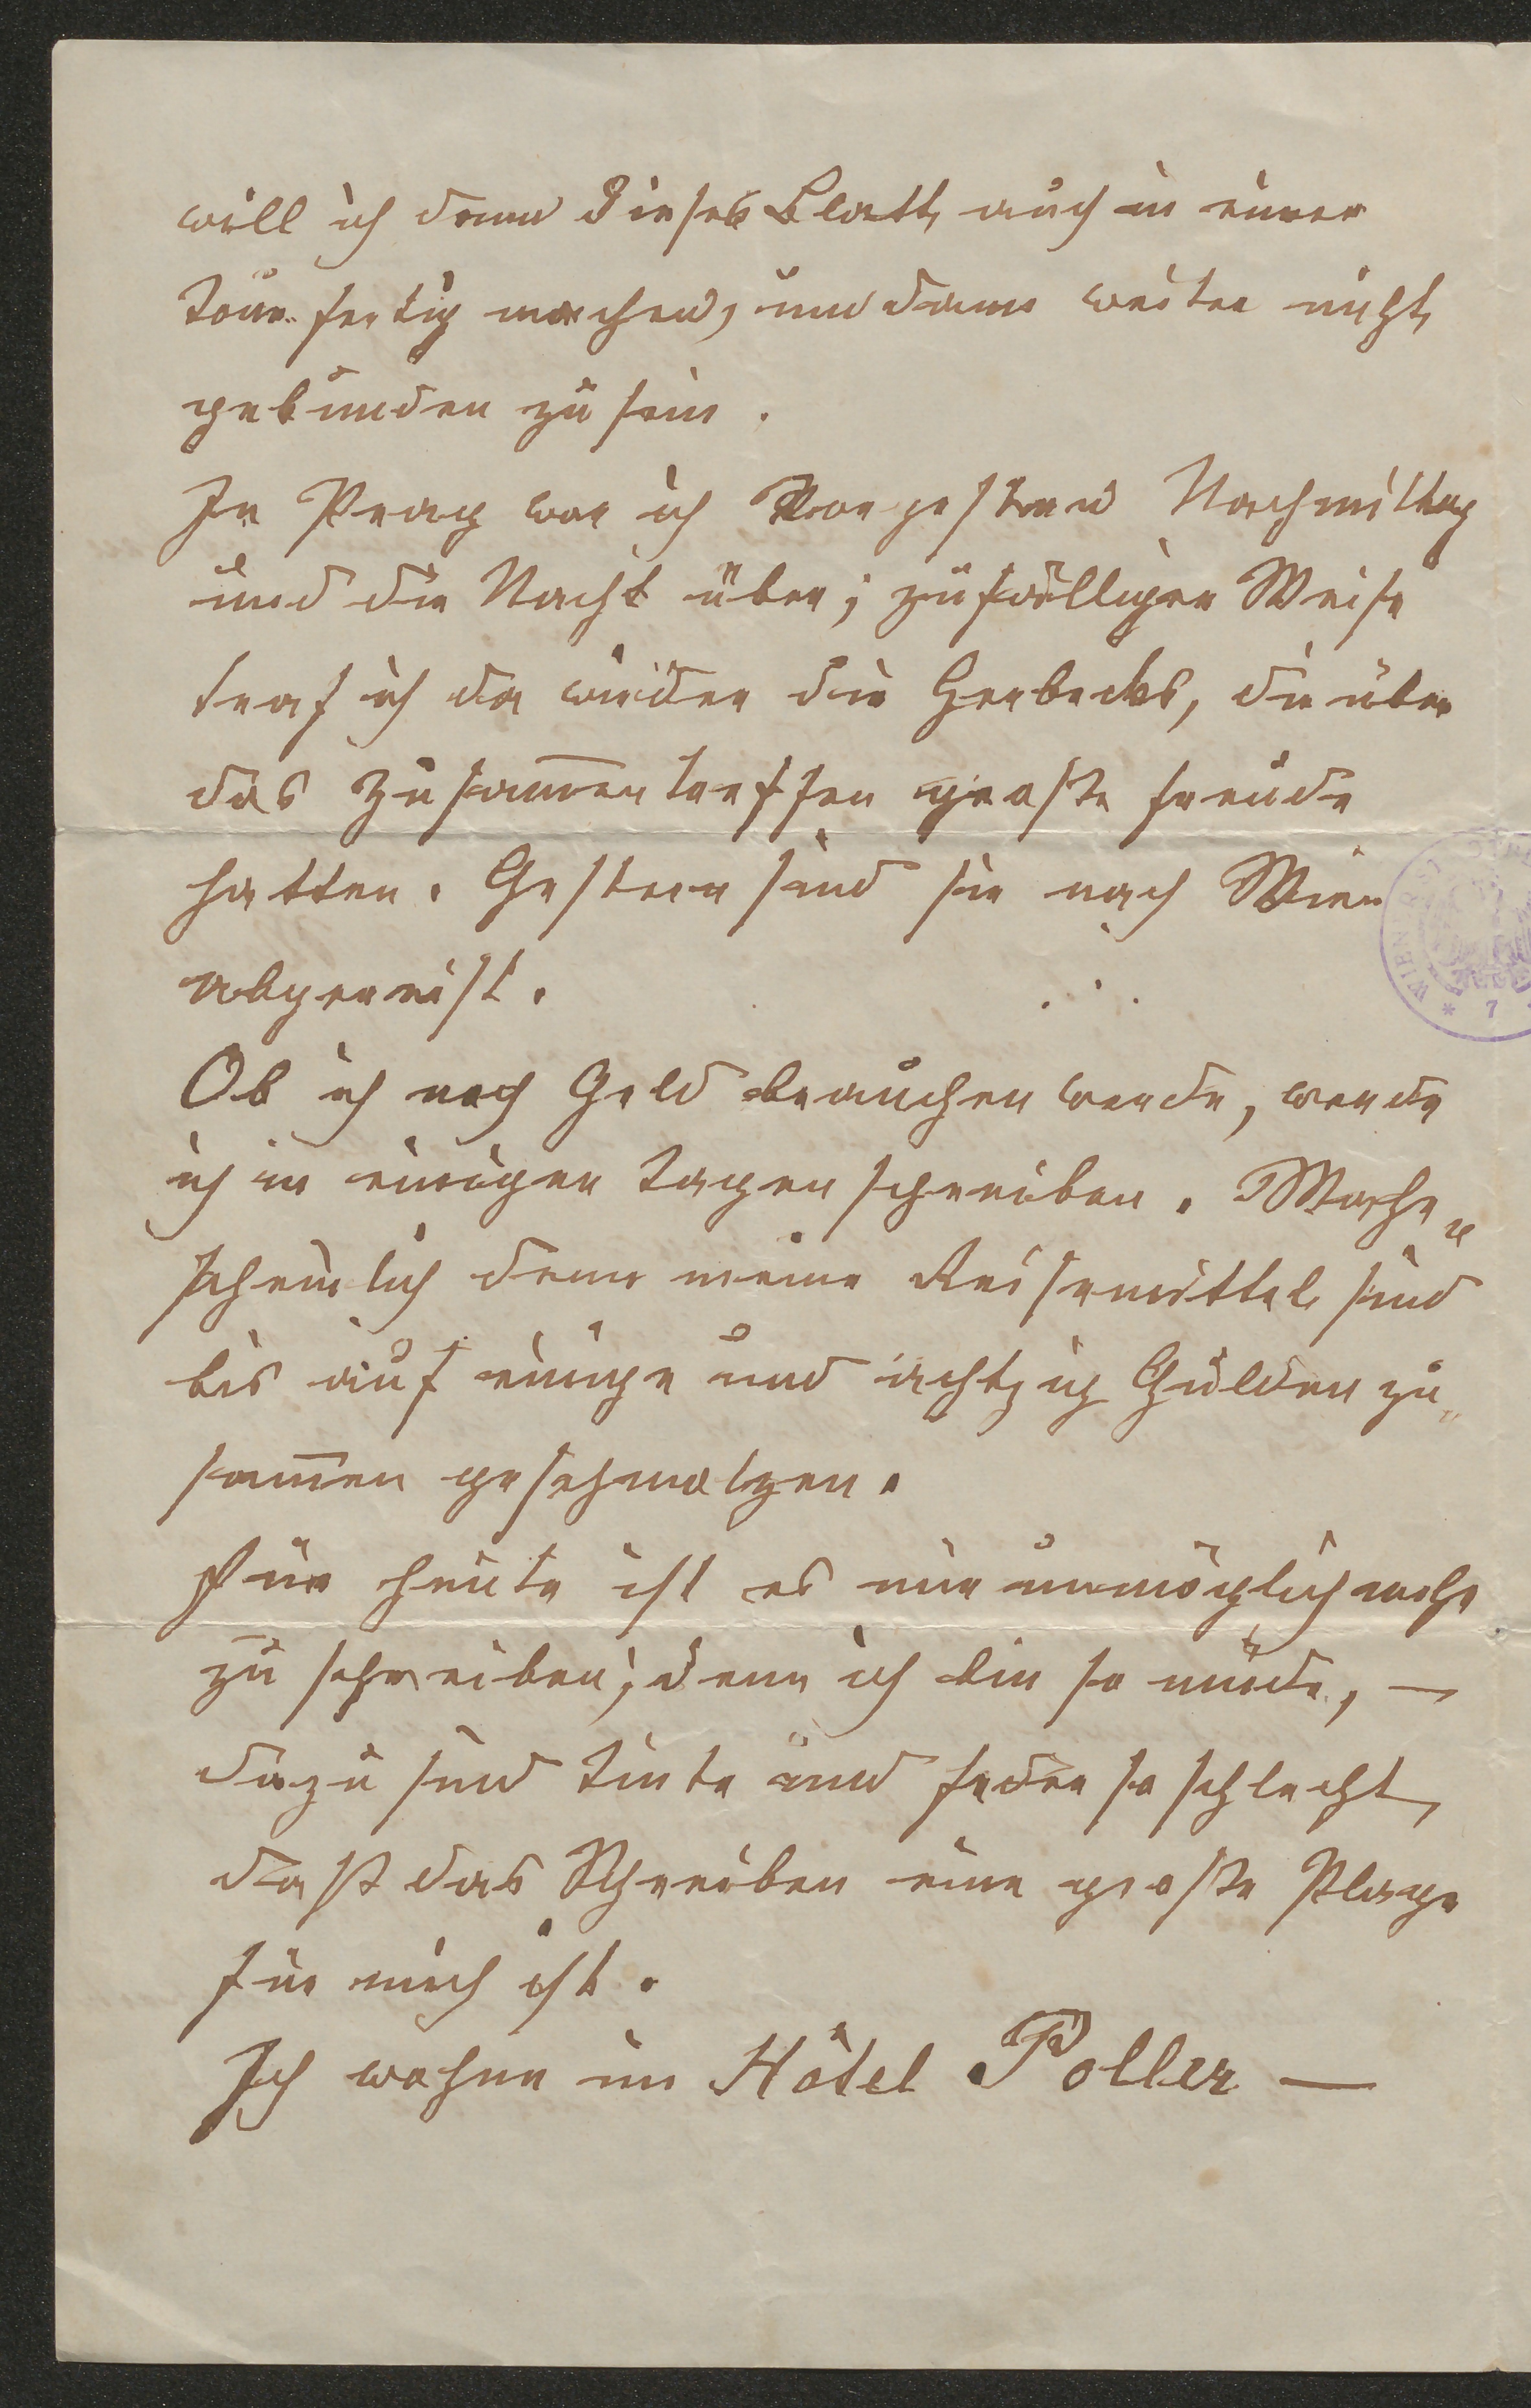 will ich denn dieses Blatt auch in einer
Tour fertig machen, um dann weiter nicht
gebunden zu sein.
In Prag war ich vorgestern Nachmittag
und die Nacht über; zufälliger Weise
traf ich da wieder die Herbecks, die über
das Zusam̅entreffen große Freude
hatten. Gestern sind sie nach Wien
abgereist.
Ob ich noch Geld brauchen werde, werde
ich in einigen Tagen schreiben. Wahr„
scheinlich denn meine Reisemittel sind
bis auf einige und achtzig Gulden zu„
sam̅en geschmolzen.
Für heute ist es mir unmöglich mehr
zu schreiben; denn ich bin so müde, —
dazu sind Tinte und Feder so schlecht,
daß das Schreiben eine große Plage
für mich ist.
Ich wohne im Hôtel Poller —
WIEN
* 7